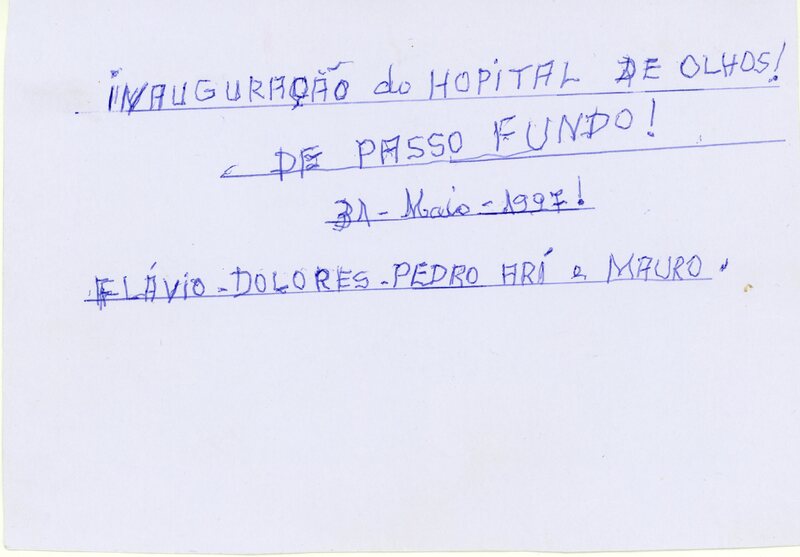 INAUGURAÇÃO do HOPITAL DE OLHOS!
DE PASSO FUNDO!
31- Maio - 1997!
FLÁVIO - DOLORES - PEDRO ARÍ e MAURO.